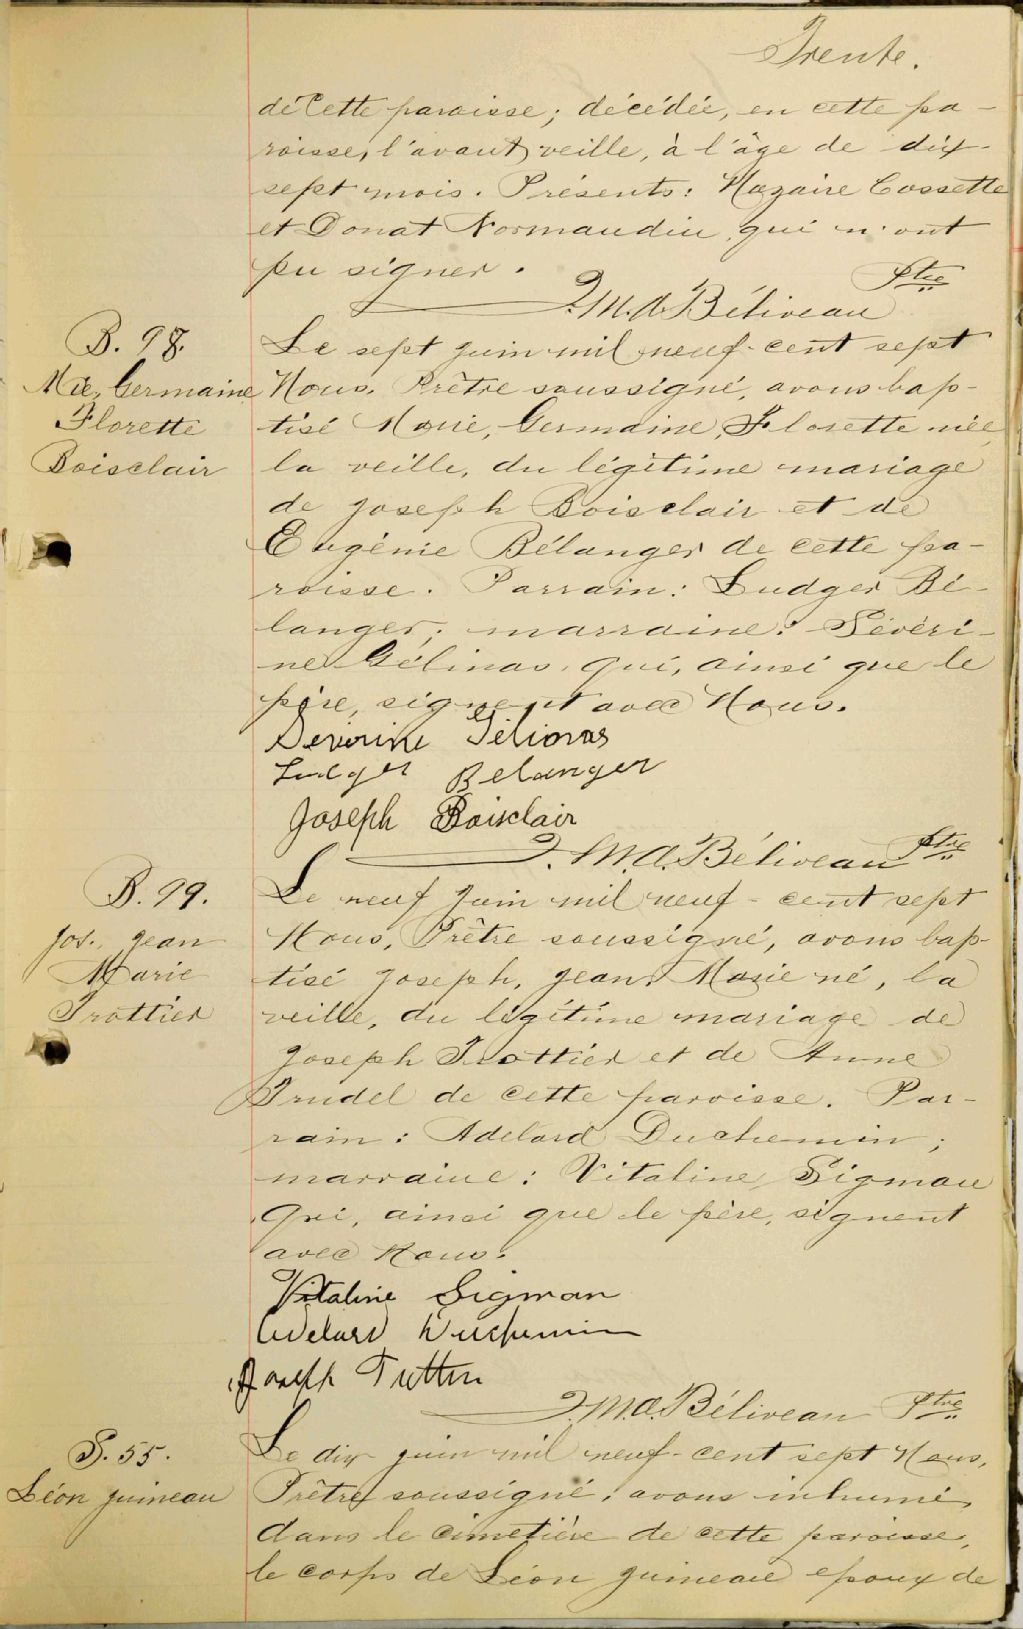 Trente.
de cette paroisse; décédée, en cette pa-
roisse, l'avant veille, à l'âge de dix-
sept mois. Présents: Nazaire Cossette
et Donat Normandin, qui n'ont
pu signer.
J. M. A. Béliveau Ptre
B. 98.
Mie, Germaine
Florette
Boisclair
Le sept juin mil neuf-cent sept
Nous, Prêtre soussigné, avons bap-
tisé Marie, Germaine, Florette née,
la veille, du légitime mariage
de Joseph Boisclair et de
Eugénie Bélanger de cette pa-
roisse. Parrain: Ludger Bé-
langer; marraine: Sévéri-
ne Gélinas, qui, ainsi que le
père, signent avec Nous.
Severine Gélinas
Ludger Belanger
Joseph Boisclair
J. M. A. Béliveau Ptre
B. 99.
Jos., Jean
Marie
Trottier
Le neuf juin mil neuf-cent sept
Nous, Prêtre soussigné, avons bap-
tisé Joseph, Jean, Marie né, la
veille, du légitime mariage de
Joseph Trottier et de Anne
Trudel de cette paroisse. Par-
rain: Adelard Duchemin;
marraine: Vitaline Sigman
qui, ainsi que le père, signent
avec Nous.
Vitaline Sigman
Adelard Duchemin
Joseph Trottier
J. M. A. Béliveau Ptre
S. 55.
Léon Juineau
Le dix juin mil neuf-cent sept Nous,
Prêtre soussigné, avons inhumé,
dans le cimetière de cette paroisse,
le corps de Léon Juineau epoux de